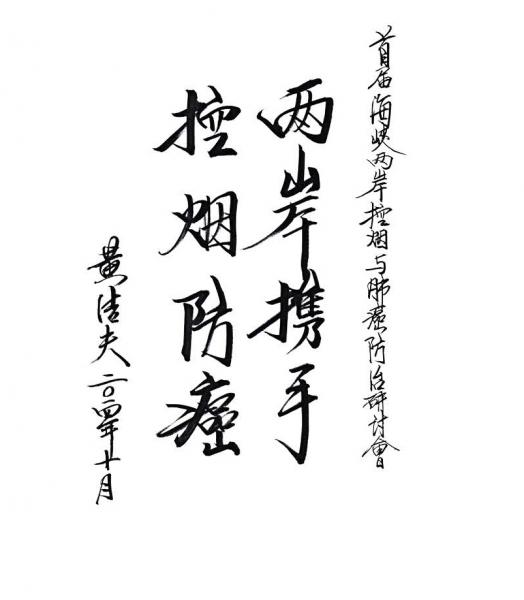 首届海峡两岸控烟与肺癌防治研讨會
两岸携手
控烟防癌
黄洁夫二〇〇四年十月